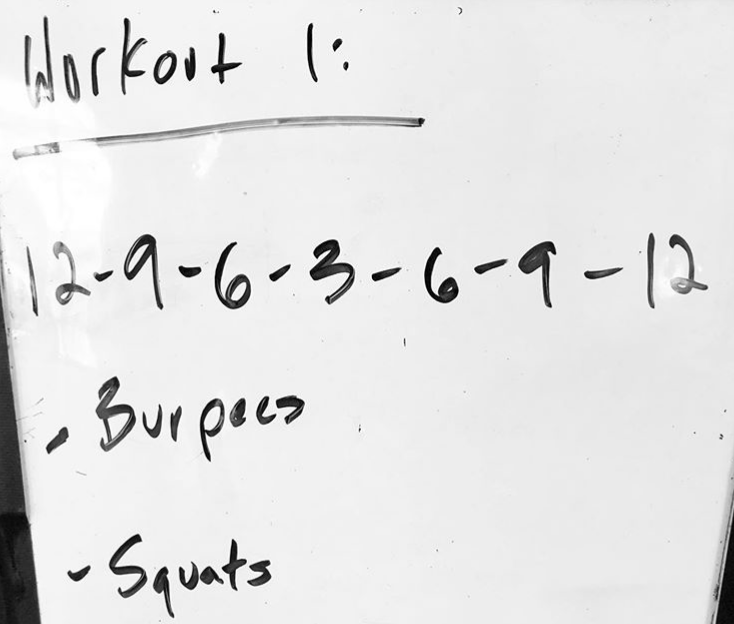 Workout 1:
12-9-6-3-6-9-12
- Burpees
- Squats